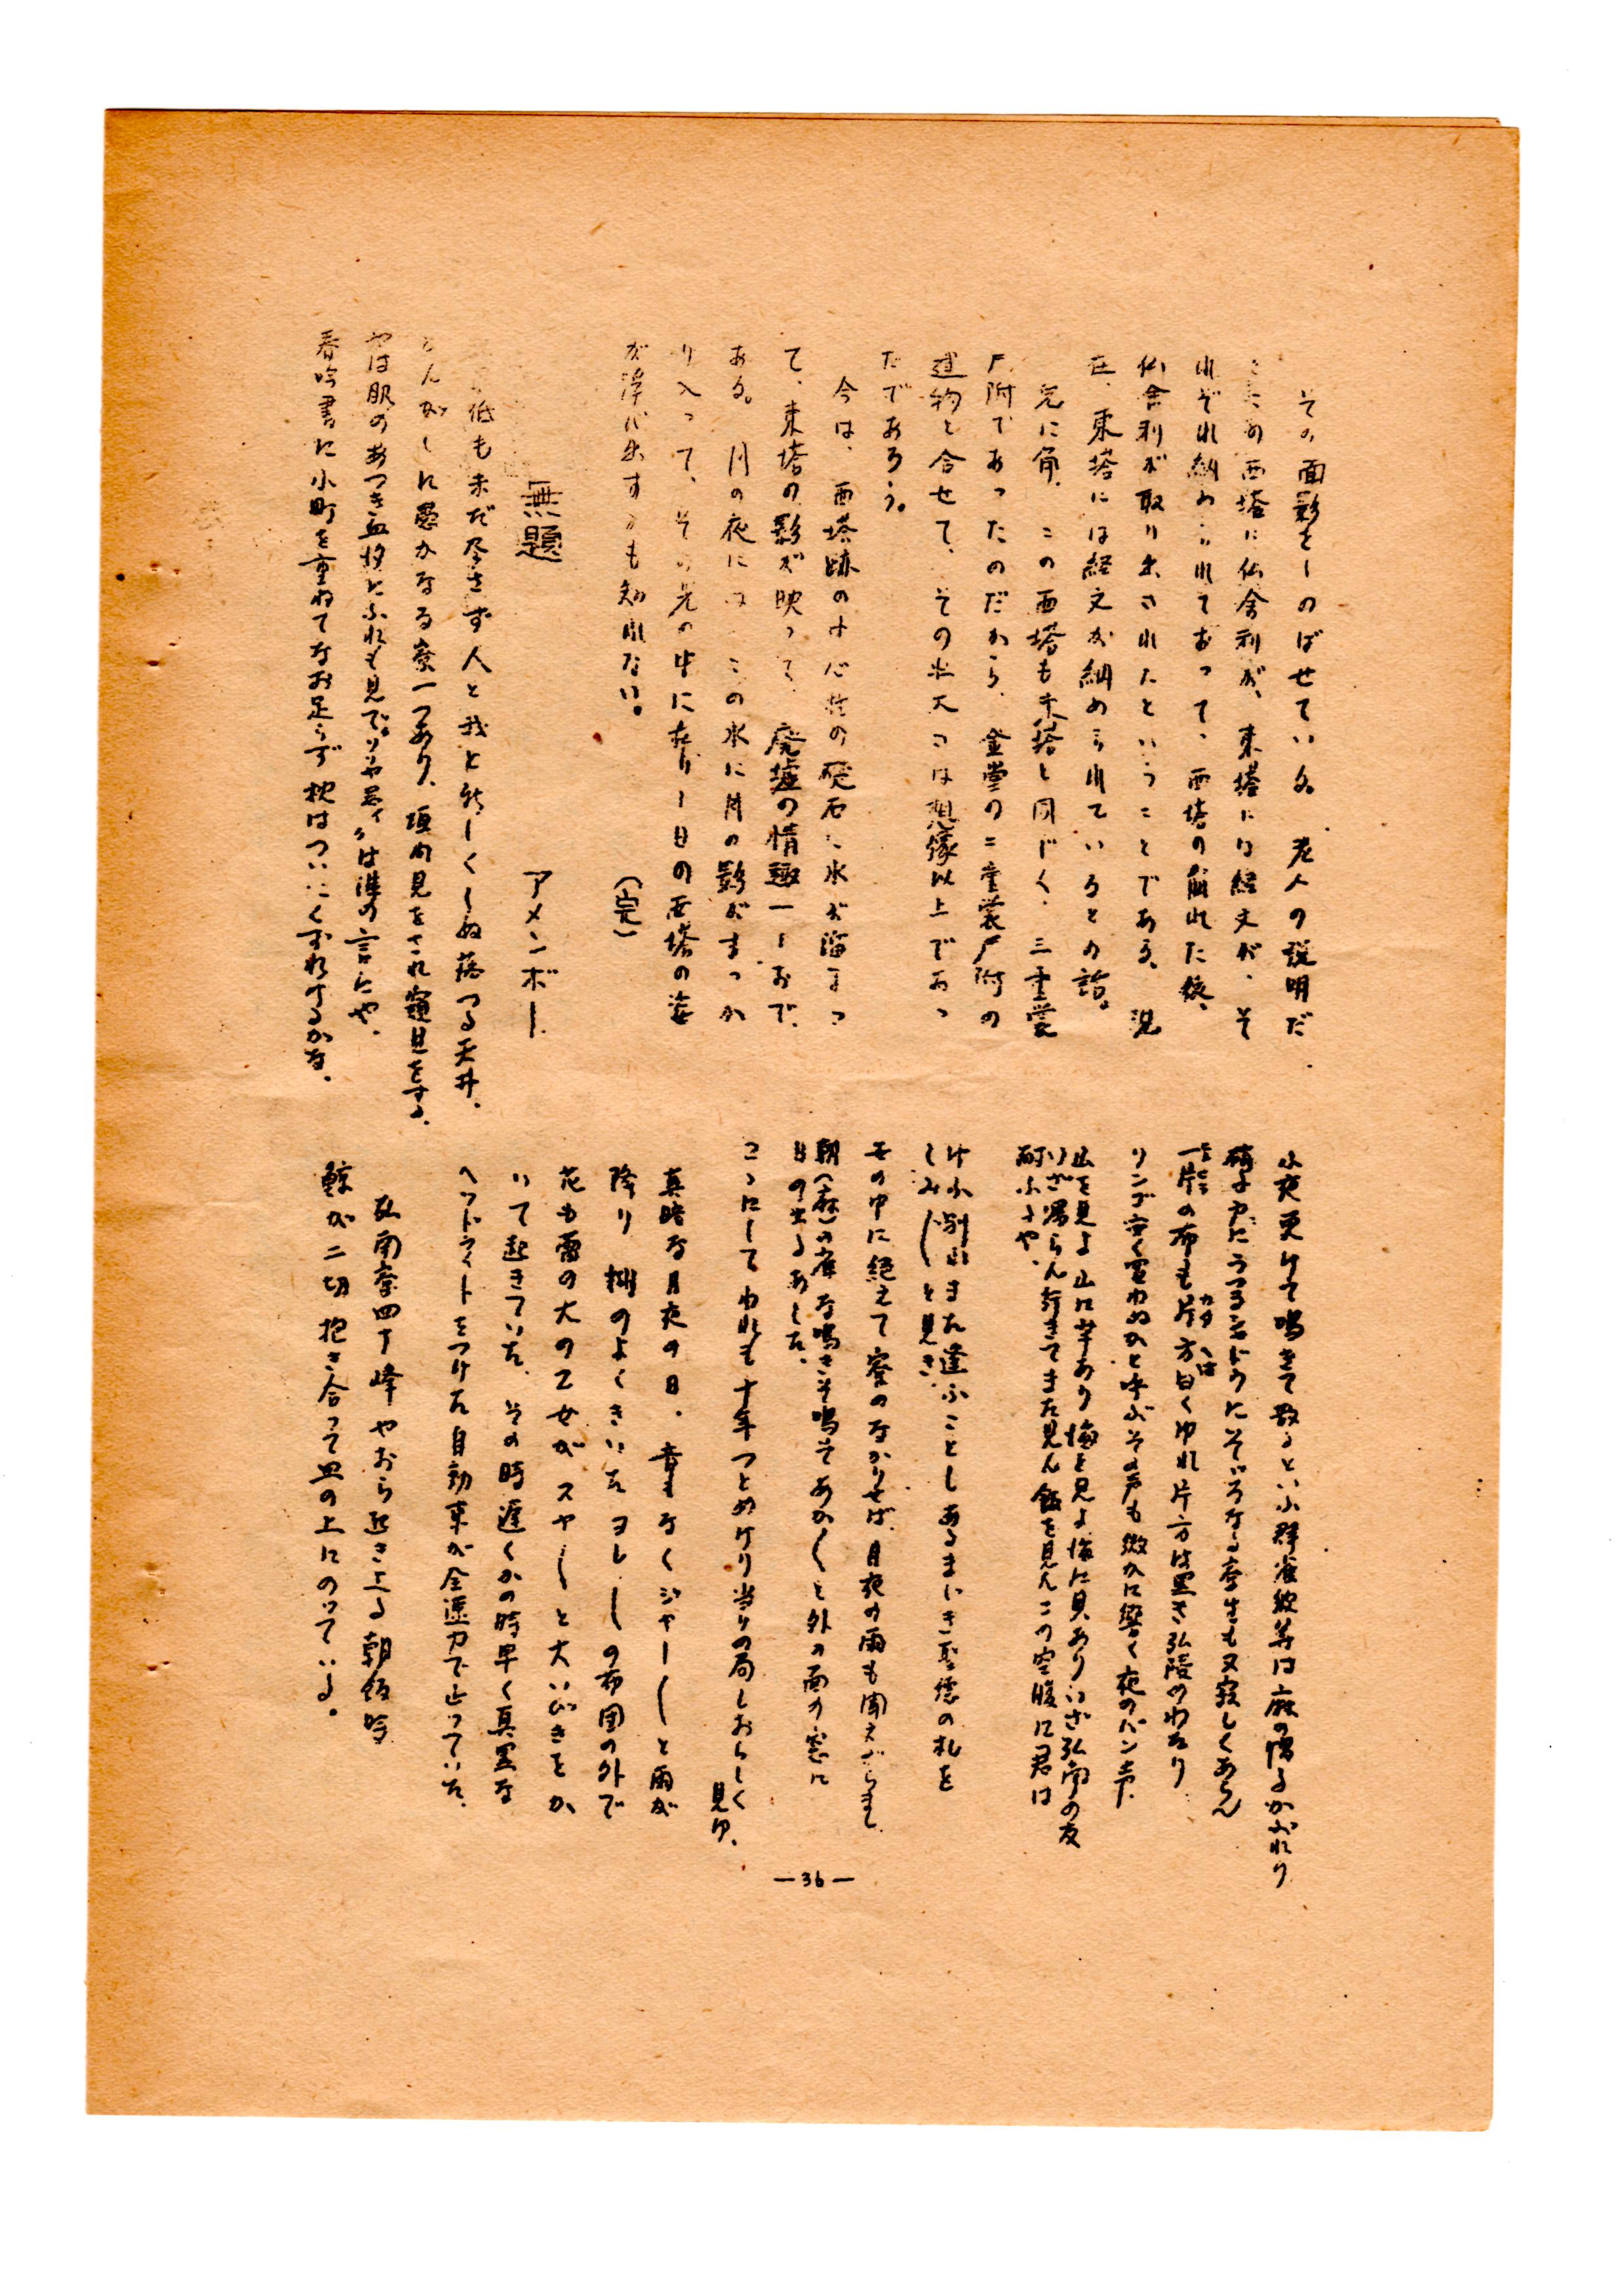 その面影をしのばせている。老人の説明だ
西塔に仏舎利が、東塔には経文が、そ
れぞれ納められておって、西塔の崩れた後、
仏舎利が取り出されたということである。現
在、東塔には経文が納められているとの話。
元に角、この西塔も東塔と同じく、三重裳
戸附であったのだから、金堂の二重裳戸附の
建物と合せて、その壮大さは想像以上であっ
たであろう。
今は、西塔跡の中心柱の礎石に水が溜まっ
て、東塔の影が映って、廃墟の情趣一しおで
ある。月の夜には、この水に月の影がすっか
り入って、その光の中に在りし日の西塔の姿
が浮び出すかも知れない。
(完)
無題
アメンボー
低も未だ尽さず人と我と
くしぬ落つる天井、
愚かなる寮一つあり、
見をされ寝見をする、
やは肌のあつき血汐にふれも見で、
は誰の言にや、
春吟書に小町を重ねてなお足らず枕はついにくずれけるかな、
小夜更けて鳴きて
といふ群雀
等は麻の
うつるシャドウにそぞろなる寮生も又寂しくあらん
片の布も片方白くゆれ片方は黒き弘陵のわたり
カタ
リンゴ安く
わぬかと呼ぶその声も微かに響く夜のパン売
山を見よ山に芋あり海を見よ海に貝ありいざ弘南の友
いざ帰らん行きてまた見ん飯を見んこの空腹に君は
耐ふよや、
けふ別れまた逢ふことしあるまじき聖徳の札を
しみ〲と見き、
その中に絶えて寮のなかりせば、月夜の雨も聞えざらまし
朝(麻)の
な鳴きそ鳴きそあか〱と外の面の窓に
日の出るあした、
ここにしてわれも十年つとめけり当りの局しおらしく
見ゆ、
真暗な月夜の日、音もなくジャー〱と雨が
降り、糊のよくきいたヨレ〱の布団の外で
花も
の大の乙女がスヤ〱と大いびきをか
いて起きていた、その時遅くかの時早く真黒な
ヘッドライトをつけた自動車が全速力で止っていた、
弘南寮四丁峰やおら起き上る朝飯時
鯨が二切抱き合って皿の上にのっている。
―36―